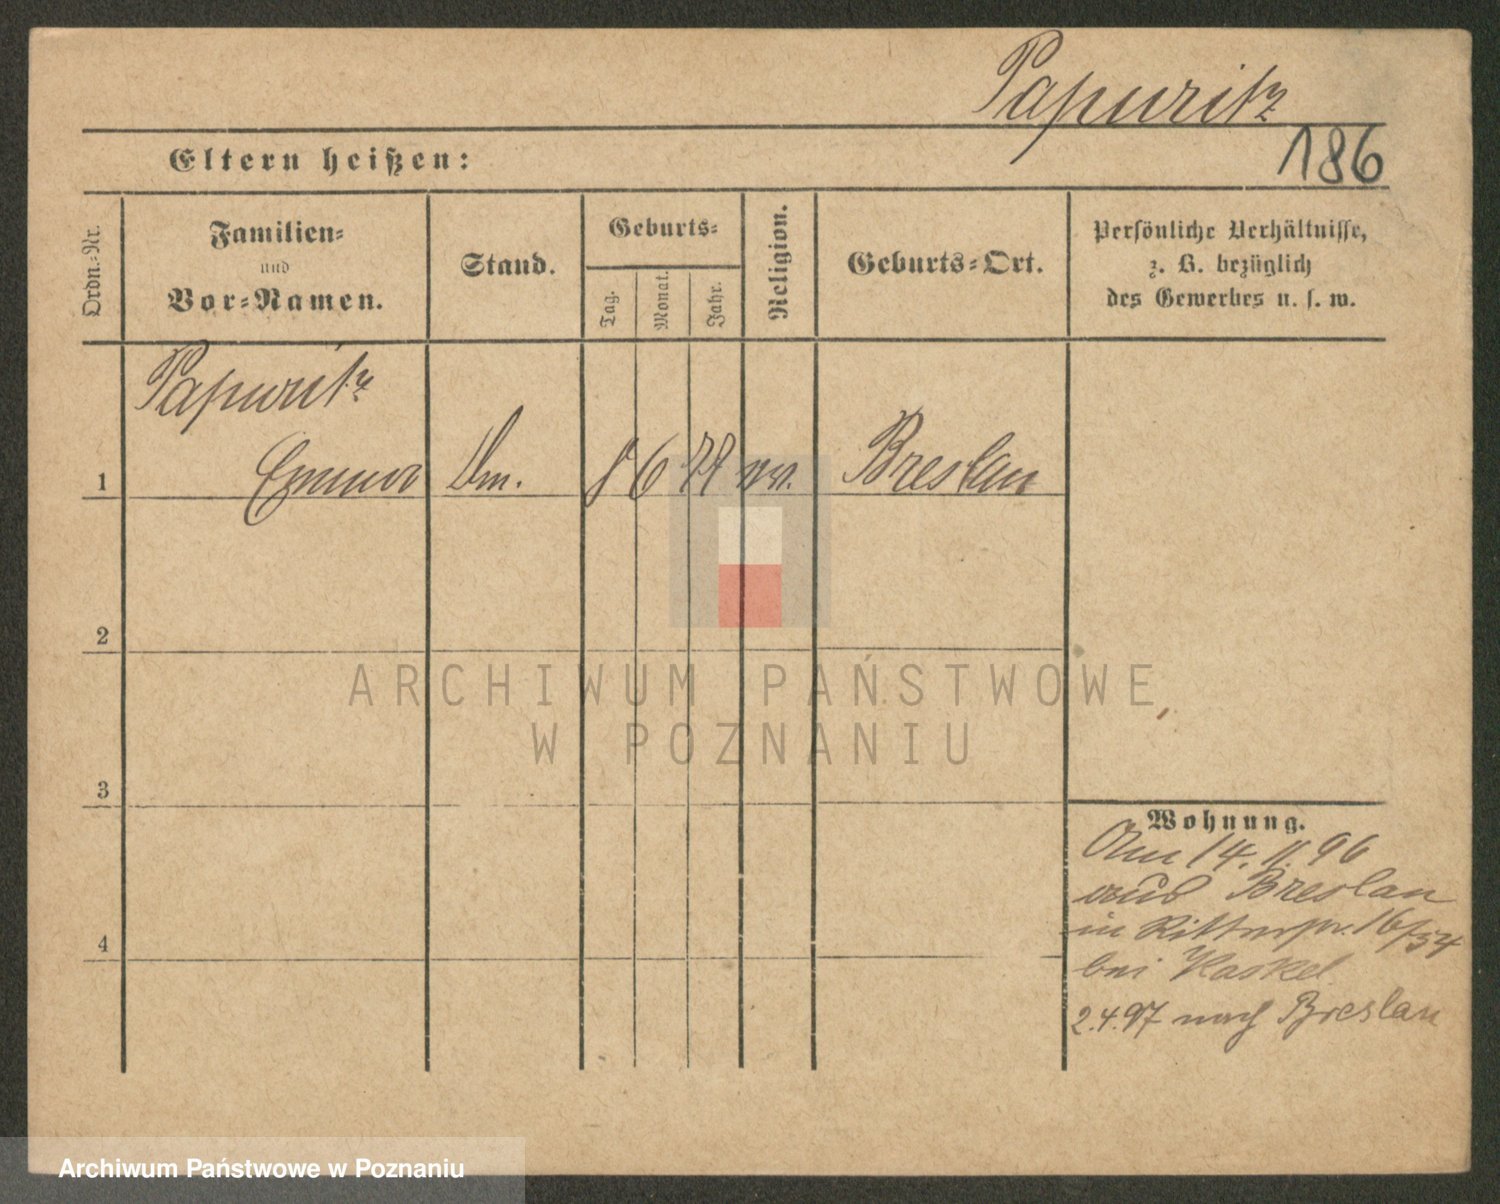 Papuritz
186
Eltern heißen:
Ordn.=Nr.
Familien=
und
Vor=Namen.
Stand.
Geburts=
Tag.
Monat.
Jahr.
Religion.
Geburts=Ort.
Persönliche Verhältnisse,
z. B. bezüglich
des Gewerbes u. s. w.
Papuritz
1 Emma 6 Breslau
2
3
4
Wohnung.
Am 14. 11. 96
aus Breslau
in Ritterstr. 16/54
bei Haskel
2.4.97 nach Breslau
ARCHIWUM PAŃSTWOWE
W POZNANIU
Archiwum Państwowe w Poznaniu